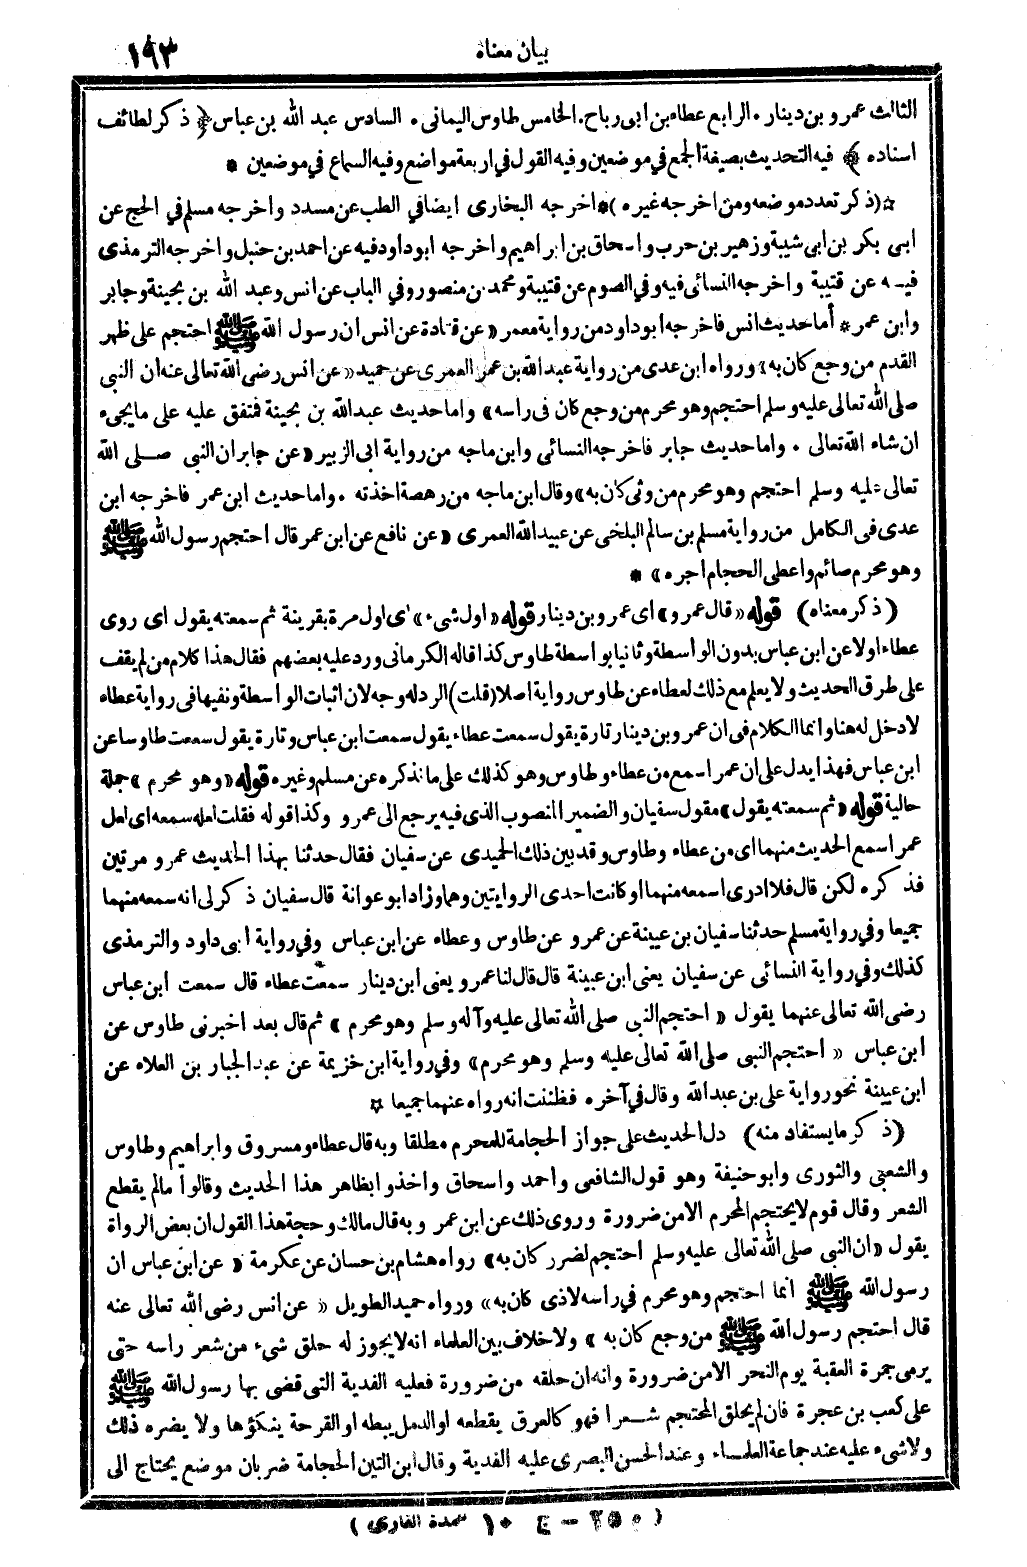 بيان معناه
١٩٣
الثالث عمرو بن دينار • الرابع عطاء بن ابى رباح • الخامس طاوس اليمانى • السادس عبد الله بن عباس ﴿ ذكر لطائف
اسناده ﴾ فيه التحديث بصيغة الجمع في موضعين وفيه القول في اربعة مواضع وفيه السماع في موضعين *
☆ (ذكر تعدد موضعه ومن اخرجه غيره) * اخرجه البخارى ايضا في الطب عن مسدد واخرجه مسلم في الحج عن
ابى بكر بن ابى شيبة وزهير بن حرب واسحاق بن ابراهيم واخرجه ابو داود فيه عن احمد بن حنبل واخرجه الترمذى
فيه عن قتيبة واخرجه النسائى فيه وفي الصوم عن قتيبة ومحمد بن منصور وفي الباب عن انس وعبد الله بن بحينة وجابر
وابن عمر * أما حديث انس فاخرجه ابو داود من رواية معمر « عن قتادة عن انس ان رسول الله ﷺ احتجم على ظهر
القدم من وجع كان به » ورواه ابن عدى من رواية عبد الله بن عمر العمرى عن حميد « عن انس رضى الله تعالى عنه ان النبى
صلى الله تعالى عليه وسلم احتجم وهو محرم من وجع كان فى راسه » واما حديث عبد الله بن بحينة فمتفق عليه على ما يجىء
ان شاء الله تعالى • واما حديث جابر فاخرجه النسائى وابن ماجه من رواية ابى الزبير « عن جابر ان النبى صلى الله
تعالى عليه وسلم احتجم وهو محرم من وثى كان به » وقال ابن ماجه من رهصة اخذته • واما حديث ابن عمر فاخرجه ابن
عدى فى الكامل من رواية مسلم بن سالم البلخى عن عبيد الله العمرى « عن نافع عن ابن عمر قال احتجم رسول الله ﷺ
وهو محرم صائم واعطى الحجام اجره » *
(ذكر معناه) قوله « قال عمرو » اى عمرو بن دينار قوله « اول شىء » اى اول مرة بقرينة ثم سمعته يقول اى روى
عطاء اولا عن ابن عباس بدون الواسطة وثانيا بواسطة طاوس كذا قاله الكرمانى ورد عليه بعضهم فقال هذا كلام من لم يقف
على طرق الحديث ولا يعلم مع ذلك لعطاء عن طاوس رواية اصلا (قلت) الرد له وجه لان اثبات الواسطة ونفيها فى رواية عطاء
لا دخل له هنا وانما الكلام فى ان عمرو بن دينار تارة يقول سمعت عطاء يقول سمعت ابن عباس وتارة يقول سمعت طاوسا عن
ابن عباس فهذا يدل على ان عمرا سمع من عطاء وطاوس وهو كذلك على ما نذكره عن مسلم وغيره قوله « وهو محرم » جملة
حالية قوله « ثم سمعته يقول » مقول سفيان والضمير المنصوب الذى فيه يرجع الى عمرو وكذا قوله فقلت لعله سمعه اى لعل
عمرا سمع الحديث منهما اى من عطاء وطاوس وقد بين ذلك الحميدى عن سفيان فقال حدثنا بهذا الحديث عمرو مرتين
فذكره لكن قال فلا ادرى اسمعه منهما او كانت احدى الروايتين وهما وزاد ابو عوانة قال سفيان ذكر لى انه سمعه منهما
جميعا وفي رواية مسلم حدثنا سفيان بن عيينة عن عمرو عن طاوس وعطاء عن ابن عباس وفي رواية أبى داود والترمذى
كذلك وفي رواية النسائى عن سفيان يعنى ابن عيينة قال قال لنا عمرو يعنى ابن دينار سمعت عطاء قال سمعت ابن عباس
رضى الله تعالى عنهما يقول « احتجم النبى صلى الله تعالى عليه وآله وسلم وهو محرم » ثم قال بعد اخبرنى طاوس عن
ابن عباس « احتجم النبى صلى الله تعالى عليه وسلم وهو محرم » وفي رواية ابن خزيمة عن عبد الجبار بن العلاء عن
ابن عيينة نحو رواية على بن عبد الله وقال في آخره فظننت انه رواه عنهما جميعا ☆
(ذكر ما يستفاد منه) دل الحديث على جواز الحجامة للمحرم مطلقا وبه قال عطاء ومسروق وابراهيم وطاوس
والشعبى والثورى وابو حنيفة وهو قول الشافعى وأحمد واسحاق واخذوا بظاهر هذا الحديث وقالوا مالم يقطع
الشعر وقال قوم لا يحتجم المحرم الا من ضرورة وروى ذلك عن ابن عمر وبه قال مالك وحجة هذا القول ان بعض الرواة
يقول « ان النبى صلى الله تعالى عليه وسلم احتجم لضرر كان به » رواه هشام بن حسان عن عكرمة « عن ابن عباس ان
رسول الله ﷺ انما احتجم وهو محرم في راسه لاذى كان به » ورواه حميد الطويل « عن انس رضى الله تعالى عنه
قال احتجم رسول الله ﷺ من وجع كان به » ولا خلاف بين العلماء انه لا يجوز له حلق شىء من شعر راسه حتى
يرمى جمرة العقبة يوم النحر الا من ضرورة وانه ان حلقه من ضرورة فعليه الفدية التى قضى بها رسول الله ﷺ
على كعب بن عجرة فان لم يحلق المحتجم شعرا فهو كالعرق يقطعه او الدمل يبطه او القرحة ينكؤها ولا يضره ذلك
ولا شىء عليه عند جماعة العلماء وعند الحسن البصرى عليه الفدية وقال ابن التين الحجامة ضربان موضع يحتاج الى
(م ٢٥ - ج ١٠ عمدة القارى)